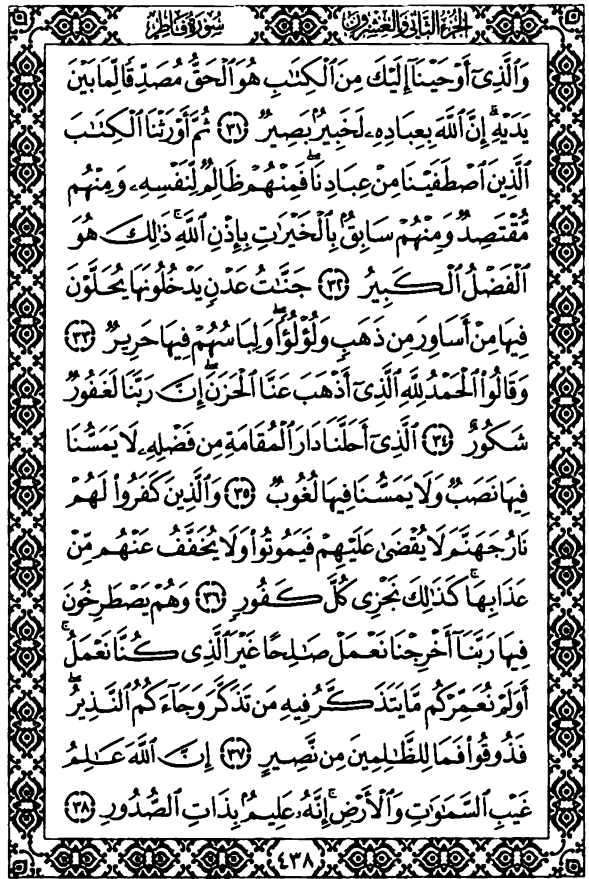 سورة فاطر الجزء الثاني والعشرون
وَٱلَّذِىٓ أَوْحَيْنَآ إِلَيْكَ مِنَ ٱلْكِتَٰبِ هُوَ ٱلْحَقُّ مُصَدِّقًا لِّمَا بَيْنَ
يَدَيْهِۗ إِنَّ ٱللَّهَ بِعِبَادِهِۦ لَخَبِيرٌۢ بَصِيرٌ ٣١ ثُمَّ أَوْرَثْنَا ٱلْكِتَٰبَ
ٱلَّذِينَ ٱصْطَفَيْنَا مِنْ عِبَادِنَاۖ فَمِنْهُمْ ظَالِمٌ لِّنَفْسِهِۦ وَمِنْهُم
مُّقْتَصِدٌ وَمِنْهُمْ سَابِقٌۢ بِٱلْخَيْرَٰتِ بِإِذْنِ ٱللَّهِۚ ذَٰلِكَ هُوَ
ٱلْفَضْلُ ٱلْكَبِيرُ ٣٢ جَنَّٰتُ عَدْنٍ يَدْخُلُونَهَا يُحَلَّوْنَ
فِيهَا مِنْ أَسَاوِرَ مِن ذَهَبٍ وَلُؤْلُؤًاۖ وَلِبَاسُهُمْ فِيهَا حَرِيرٌ ٣٣
وَقَالُوا۟ ٱلْحَمْدُ لِلَّهِ ٱلَّذِىٓ أَذْهَبَ عَنَّا ٱلْحَزَنَۖ إِنَّ رَبَّنَا لَغَفُورٌ
شَكُورٌ ٣٤ ٱلَّذِىٓ أَحَلَّنَا دَارَ ٱلْمُقَامَةِ مِن فَضْلِهِۦ لَا يَمَسُّنَا
فِيهَا نَصَبٌ وَلَا يَمَسُّنَا فِيهَا لُغُوبٌ ٣٥ وَٱلَّذِينَ كَفَرُوا۟ لَهُمْ
نَارُ جَهَنَّمَ لَا يُقْضَىٰ عَلَيْهِمْ فَيَمُوتُوا۟ وَلَا يُخَفَّفُ عَنْهُم مِّنْ
عَذَابِهَاۚ كَذَٰلِكَ نَجْزِى كُلَّ كَفُورٍ ٣٦ وَهُمْ يَصْطَرِخُونَ
فِيهَا رَبَّنَآ أَخْرِجْنَا نَعْمَلْ صَٰلِحًا غَيْرَ ٱلَّذِى كُنَّا نَعْمَلُۚ
أَوَلَمْ نُعَمِّرْكُم مَّا يَتَذَكَّرُ فِيهِ مَن تَذَكَّرَ وَجَآءَكُمُ ٱلنَّذِيرُۖ
فَذُوقُوا۟ فَمَا لِلظَّٰلِمِينَ مِن نَّصِيرٍ ٣٧ إِنَّ ٱللَّهَ عَٰلِمُ
غَيْبِ ٱلسَّمَٰوَٰتِ وَٱلْأَرْضِۚ إِنَّهُۥ عَلِيمٌۢ بِذَاتِ ٱلصُّدُورِ ٣٨
٤٣٨